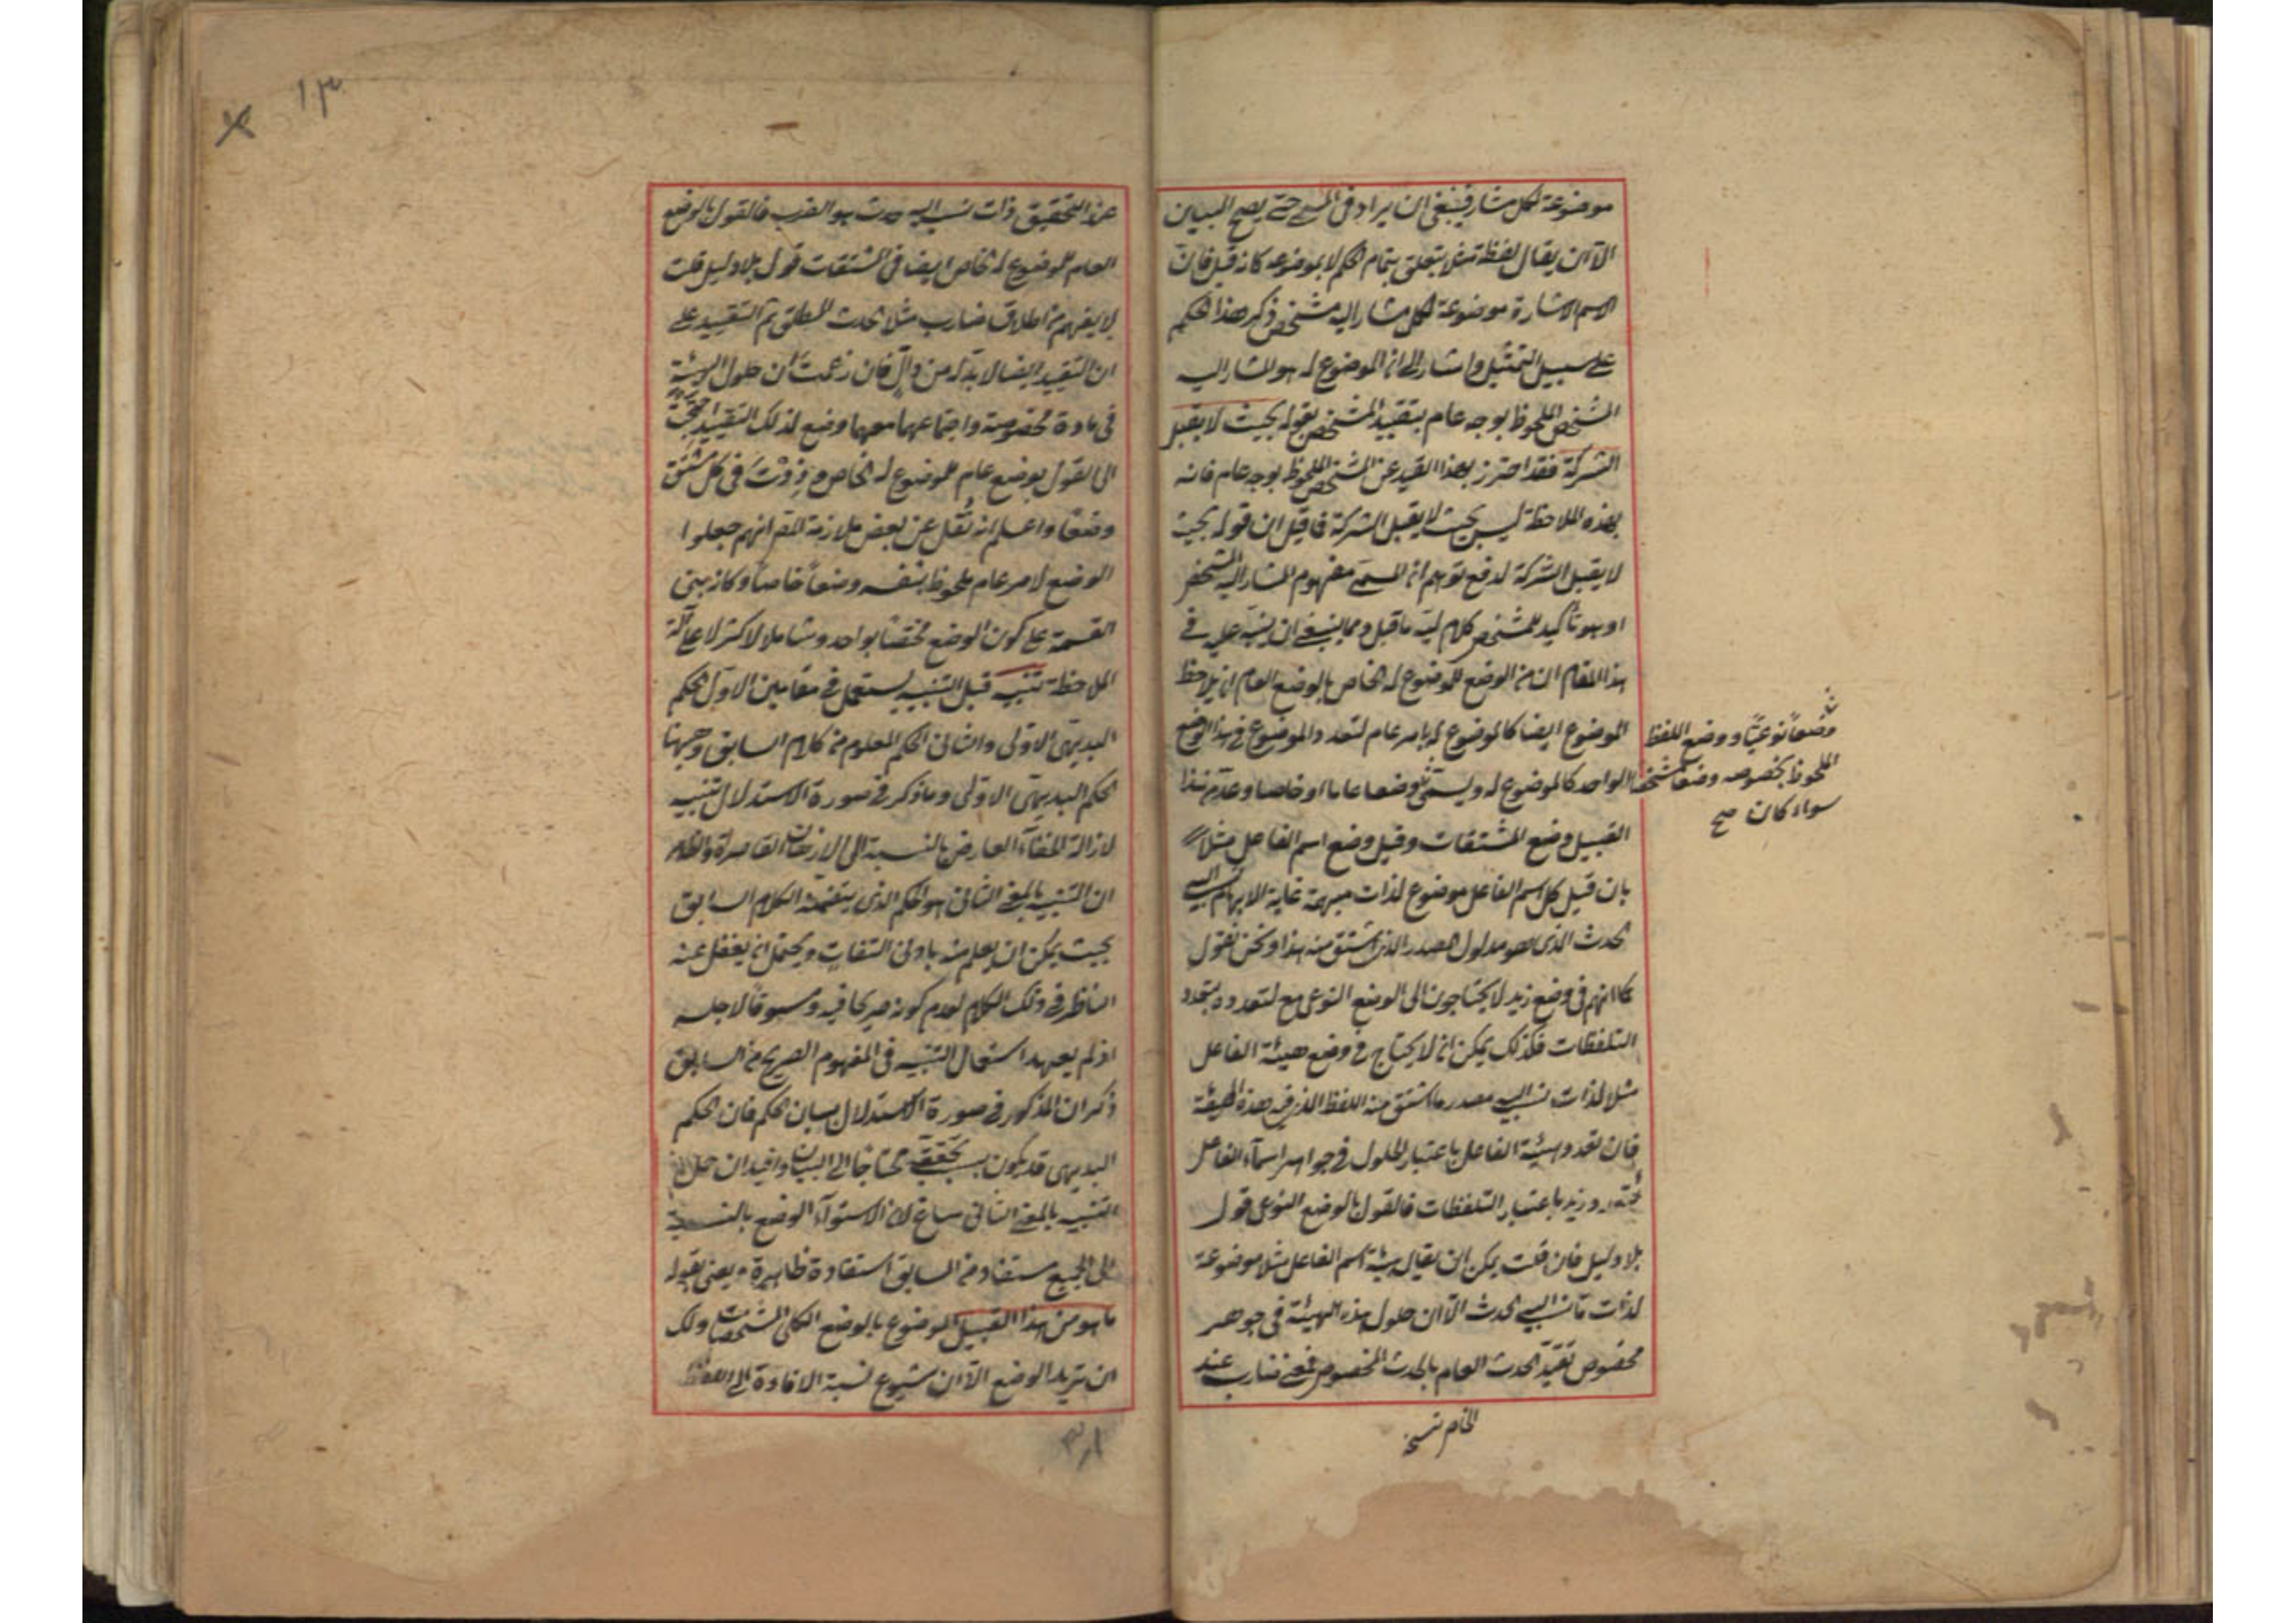 موضوعة لكل مشار فينبغى ان يراد فى المسمى حتى يصح البيان
الا ان يقال لفظة مثلا يتعلق بتمام الحكم لا بموضوعه كانه قيل فان
اسم الاشارة موضوعة لكل مشار اليه مشخص ذكر هذا الحكم
على سبيل التمثيل واشار الى ان الموضوع له هو المشار اليه
المشخص الملحوظ بوجه عام بتقييد المشخص بقوله بحيث لا يقبل
الشركة فقد احترز بهذا القيد عن المشخص الملحوظ بوجه عام فانه
بهذه الملاحظة ليس بحيث لا يقبل الشركة فما قيل ان قوله بحيث
لا يقبل الشركة لدفع توهم ان المسمى مفهوم المشار اليه المشخص
او هو تأكيد للمشخص كلام ليه ما قيل ومما ينبغى ان ينبه عليه فى
هذا المقام ان من الوضع للموضوع له الخاص بالوضع العام ان يلاحظ
الموضوع ايضا كالموضوع له بامر عام لتعدد الموضوع فى هذا الوضع
الواحد كالموضوع له ويسمى وضعا عاما او خاصا وعد من هذا
القبيل وضع المشتقات وقيل وضع اسم الفاعل مثلا
بان قيل كل اسم الفاعل موضوع لذات مبهمة غاية الابهام نسب اليه
الحدث الذى هو مدلول المصدر الذى اشتق منه هذا ونحن نقول
كما انهم فى وضع زيد لا يحتاجون الى الوضع النوعى مع تعدده بتعدد
التلفظات فكذلك يمكن ان لا يحتاج فى وضع هيئة الفاعل
مثلا لذات نسب اليه مصدر ما اشتق منه اللفظ الذى فيه هذه الهيئة
فان تعدد هيئة الفاعل باعتبار الحلول فى جواهر اسماء الفاعل
كتعدد زيد باعتبار التلفظات فالقول بالوضع النوعى قول
بلا دليل فان قلت يمكن ان يقال هيئة اسم الفاعل مثلا موضوعة
لذات ما نسب اليه الحدث الا ان حلول هذه الهيئة فى جوهر
مخصوص تقيد الحدث العام بالحدث المخصوص فمعنى ضارب عند
وضعاً نوعيّاً ووضع اللفظ
الملحوظ بخصوصه وضعا شخصيا
سواء كان صح
الخام نسخ
١٣
هذا التحقيق ذات نسب اليه حدث هو الضرب فالقول بالوضع
العام للموضوع له الخاص ايضا فى المشتقات قول بلا دليل قلت
لا يفهم من اطلاق ضارب مثلا الحدث المطلق ثم التقييد على
ان التقييد ايضا لا بد له من دال فان زعمت ان حلول الهيئة
فى مادة مخصوصة واجتماعها معها وضع لذلك التقييد احتجت
الى القول بوضع عام للموضوع له الخاص وزدت فى كل مشتق
وضعا واعلم انه نقل عن بعض ملازمة المص انهم جعلوا
الوضع لامر عام ملحوظ بنفسه وضعاً خاصاً وكانه بنى
القسمة على كون الوضع مختصاً بواحد وشاملا لاكثر لا على آلة
الملاحظة تنبيه قيل التنبيه يستعمل فى مقامين الاول الحكم
البديهى الاولى والثانى الحكم المعلوم من كلام السابق وجيهنا
الحكم البديهى الاولى وما ذكر فى صورة الاستدلال تنبيه
لازالة الخفاء العارض بالنسبة الى الاذهان القاصرة والظاهر
ان التنبيه بالمعنى الثانى هو الحكم الذى يتضمنه الكلام السابق
بحيث يمكن ان يعلم منه بادنى التفات ويحتمل ان يغفل عنه
الناظر فى ذلك الكلام لعدم كونه صريحا فيه ومسوقاً لاجله
اذ لم يعهد استعمال التنبيه فى المفهوم الصريح من السابق
ذكر ان المذكور فى صورة الاستدلال بيان الحكم فان الحكم
البديهى قد يكون بحققه محتاجا الى البيان وافيد ان حمل
التنبيه بالمعنى الثانى ساغ لان الاستواء الوضع بالنسبة
الى الجميع مستفاد من السابق استفادة ظاهرة ويعنى بقوله
ما هو من هذا القبيل الموضوع بالوضع الكلى المشخصات ولك
ان تريد الوضع الا ان شيوع نسبة الافادة الى اللفظ